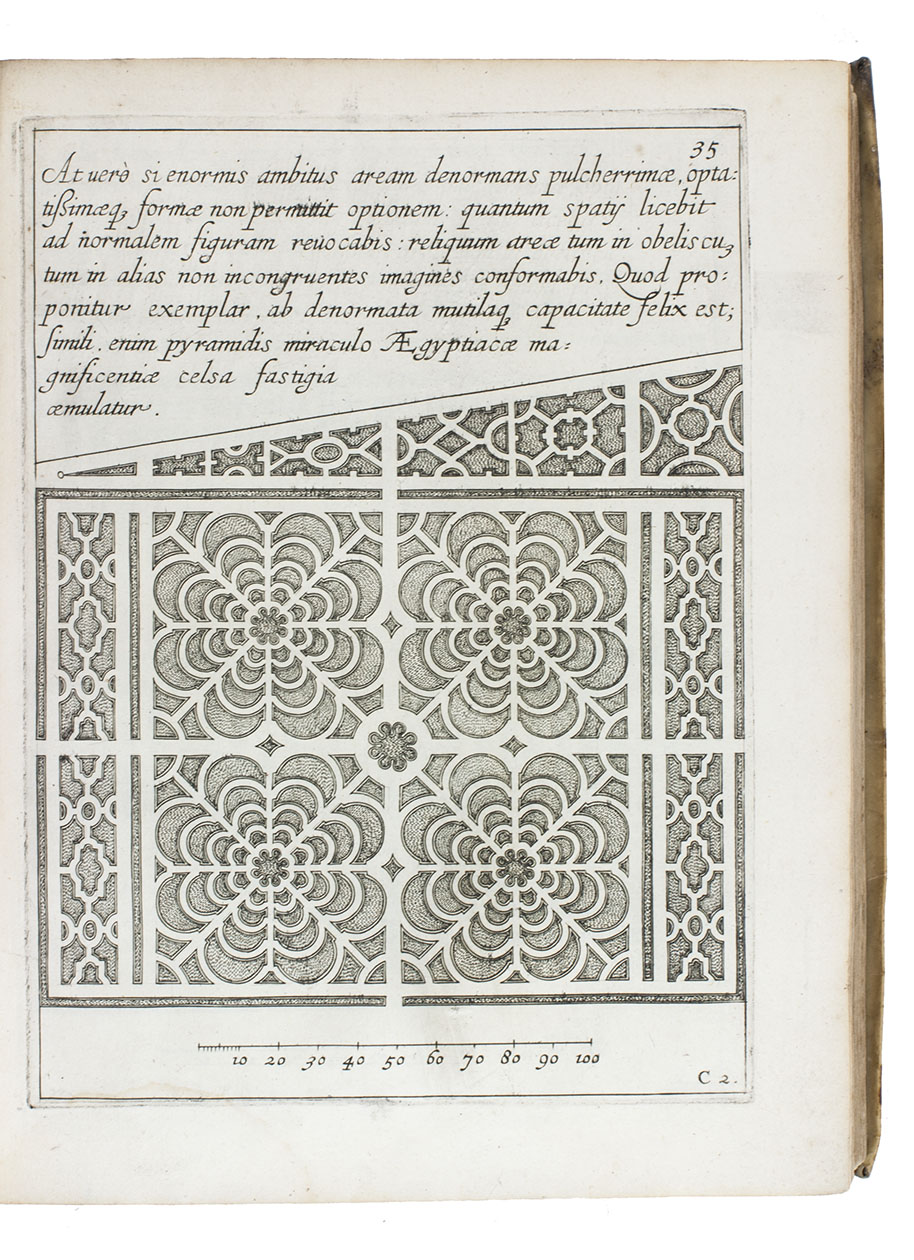 35
At verò si enormis ambitus aream denormans pulcherrimæ, opta:
tißimæq₃ formæ non permittit optionem: quantum spatij licebit
ad normalem figuram revocabis: reliquum areæ tum in obeliscu₃
tum in alias non incongruentes imagines conformabis. Quod pro:
ponitur exemplar, ab denormata mutilaq₃ capacitate felix est;
simili. enim pyramidis miraculo Ægyptiacæ ma:
gnificentiæ celsa fastigia
æmulatur.
10 20 30 40 50 60 70 80 90 100
C 2.